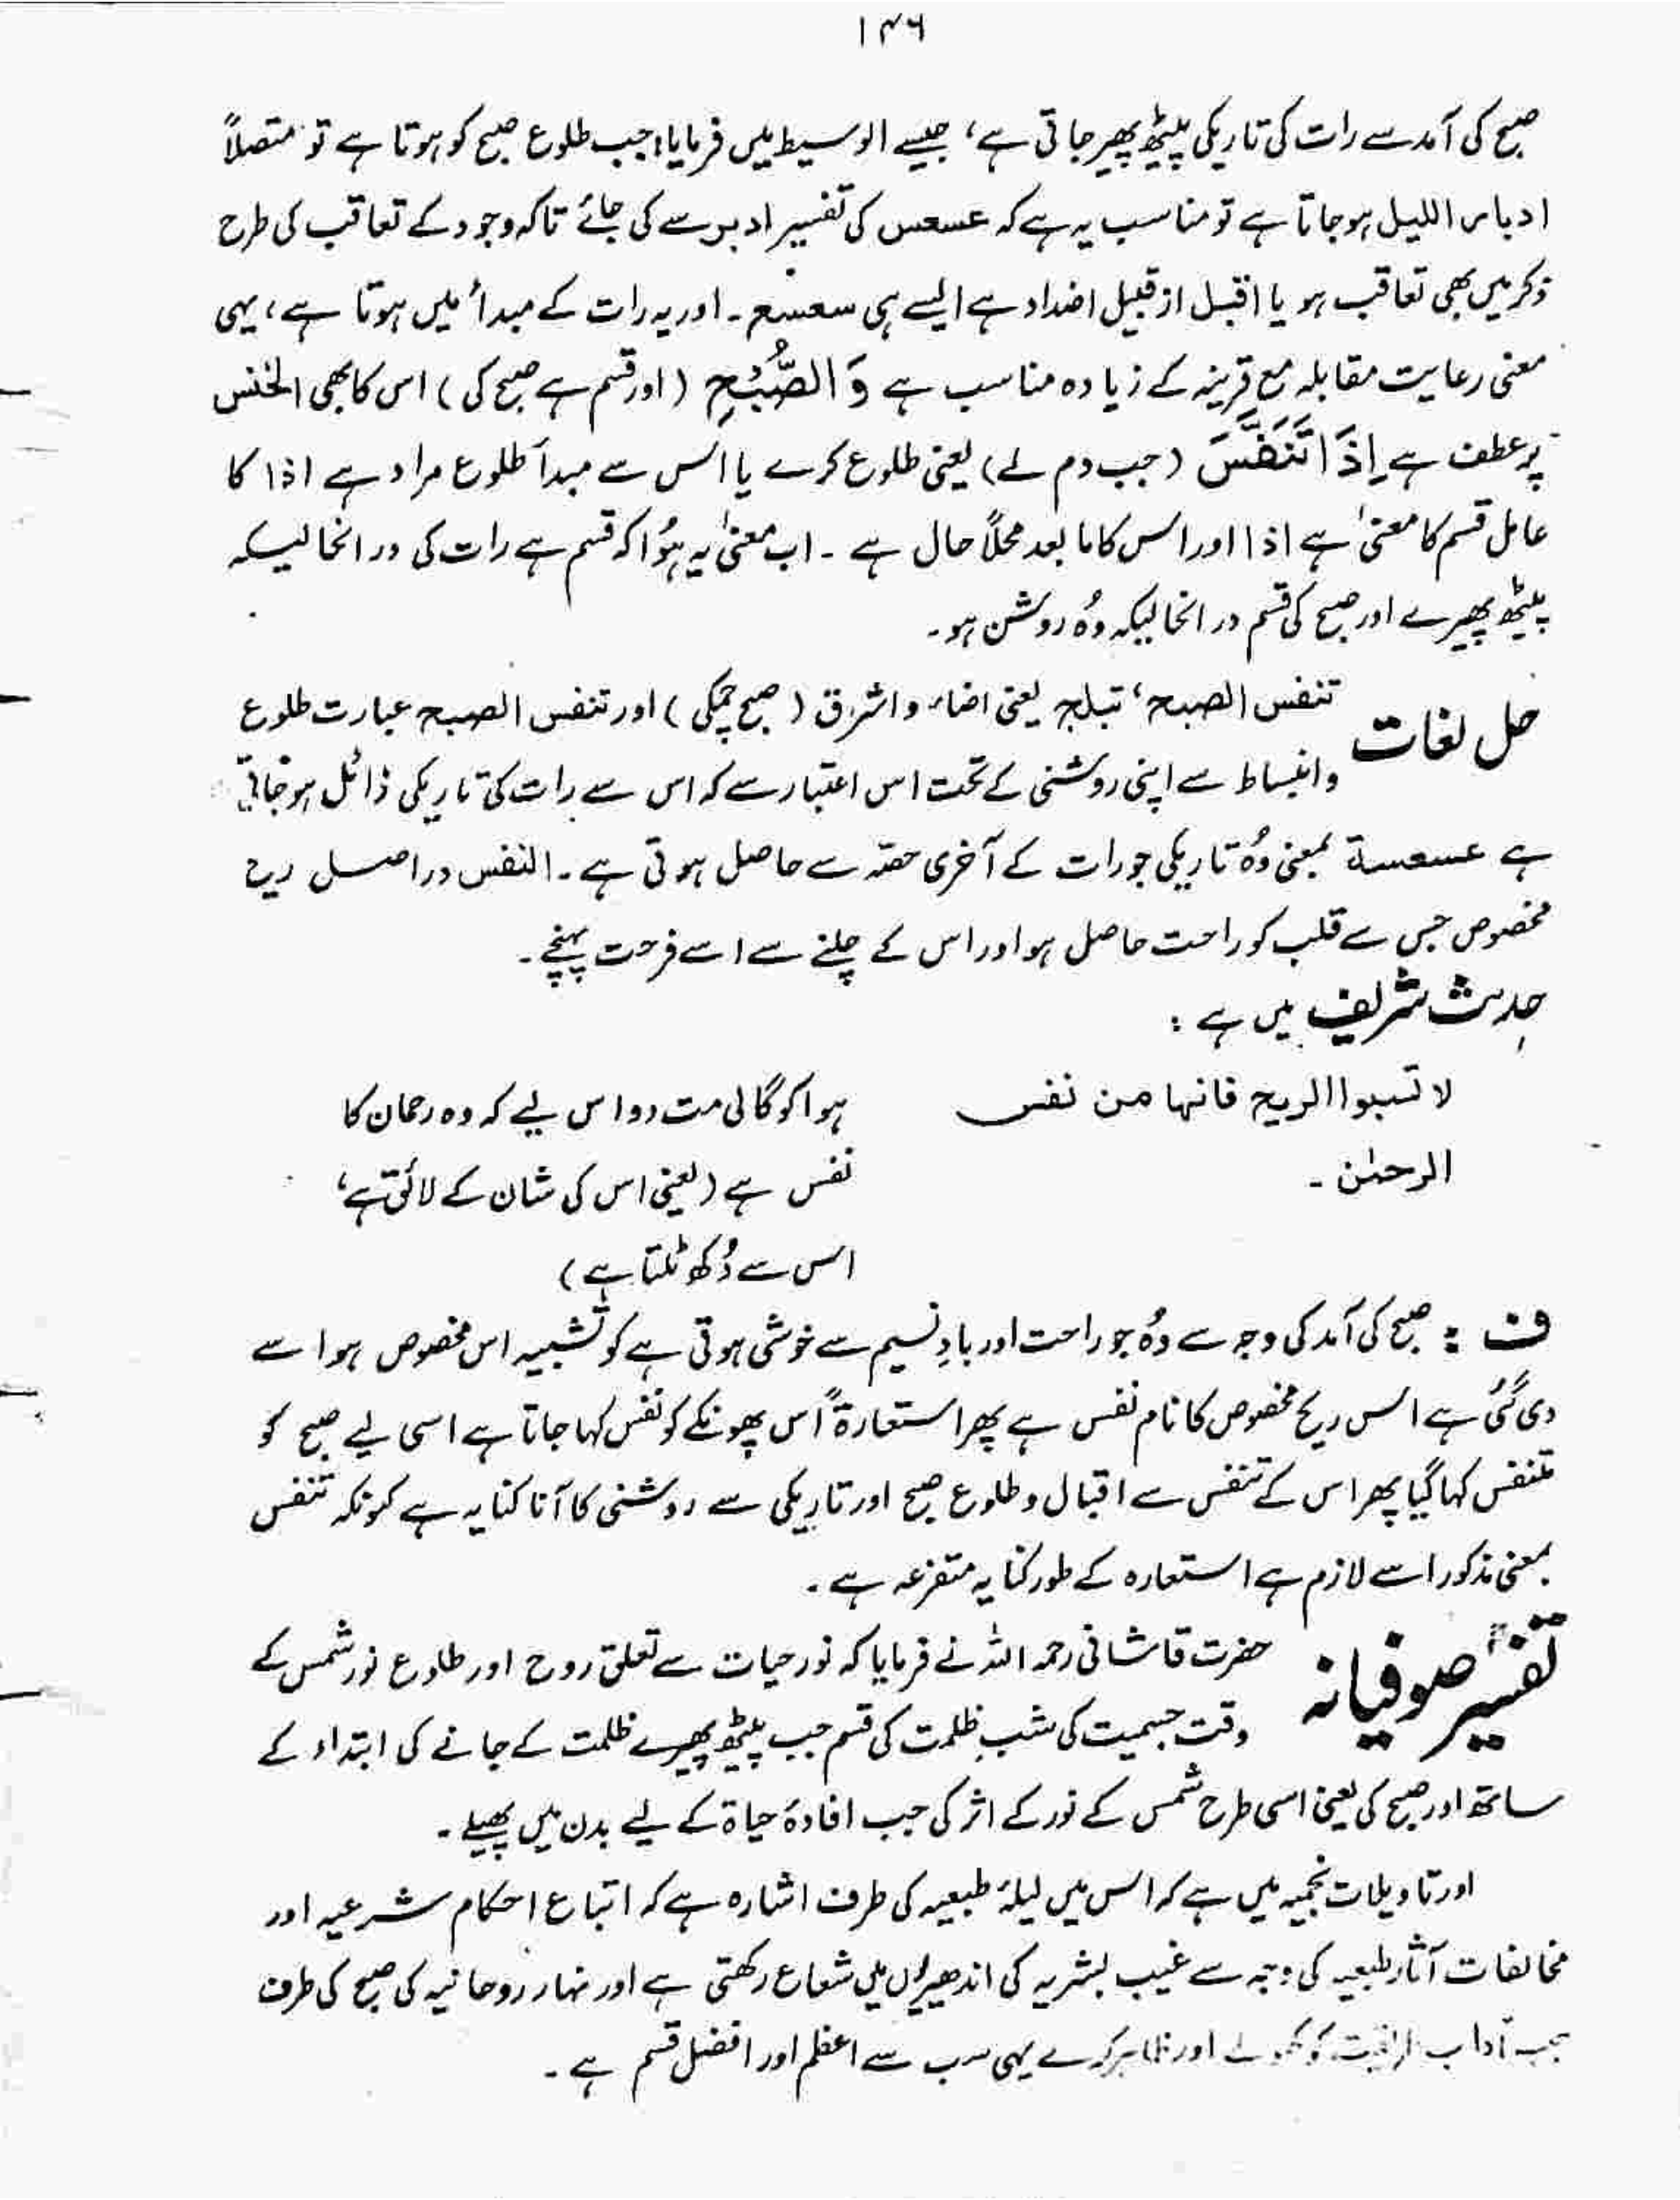 ۱۴۶
صبح کی آمد سے رات کی تاریکی پیٹھ پھیر جاتی ہے، جیسے الوسیط میں فرمایا: جب طلوع صبح کو ہوتا ہے تو متصلاً
ادبار اللیل ہوجاتا ہے تو مناسب یہ ہے کہ عسعس کی تفسیر ادبر سے کی جائے تاکہ وجود کے تعاقب کی طرح
ذکر میں بھی تعاقب ہو یا اقبل از قبیل اضداد ہے ایسے ہی سعسع۔ اور یہ رات کے مبدأ میں ہوتا ہے، یہی
معنی رعایت مقابلہ مع قرینہ کے زیادہ مناسب ہے وَالصُّبْحِ (اور قسم ہے صبح کی) اس کا بھی الخنس
پر عطف ہے اِذَا تَنَفَّسَ (جب دم لے) یعنی طلوع کرے یا اس سے مبدأ طلوع مراد ہے اذا کا
عامل قسم کا معنیٰ ہے اذا اور اس کا ما بعد محلاً حال ہے۔ اب معنیٰ یہ ہُوا کہ قسم ہے رات کی در انحالیکہ
پیٹھ پھیرے اور صبح کی قسم در انحالیکہ وُہ روشن ہو۔
حل لغات تنفس الصبح، تبلج یعنی اضاء و اشرق (صبح چمکی) اور تنفس الصبح عبارت طلوع
و انبساط سے اپنی روشنی کے تحت اس اعتبار سے کہ اس سے رات کی تاریکی ذائل ہوجاتی
ہے عسعسة بمعنی وُہ تاریکی جو رات کے آخری حصّہ سے حاصل ہوتی ہے۔ النفس دراصل ریح
مخصوص جس سے قلب کو راحت حاصل ہو اور اس کے چلنے سے اسے فرحت پہنچے۔
حدیث شریف میں ہے :
لا تسبوا الریح فانہا من نفس
الرحمٰن ۔
ہوا کو گالی مت دو اس لیے کہ وہ رحمان کا
نفس ہے (یعنی اس کی شان کے لائق ہے،
اس سے دُکھ ٹلتا ہے)
ف : صبح کی آمد کی وجہ سے وُہ جو راحت اور بادِ نسیم سے خوشی ہوتی ہے کو تشبیہ اس مخصوص ہوا سے
دی گئی ہے اس ریح مخصوص کا نام نفس ہے پھر استعارۃً اس پھونکے کو نفس کہا جاتا ہے اسی لیے صبح کو
متنفس کہا گیا پھر اس کے تنفس سے اقبال و طلوع صبح اور تاریکی سے روشنی کا آنا کنایہ ہے کیونکہ تنفس
بمعنی مذکور اسے لازم ہے استعارہ کے طور کنایہ متفرعہ ہے۔
تفسیر صوفیانہ حضرت قاشانی رحمہ اللہ نے فرمایا کہ نور حیات سے تعلق روح اور طلوع نور شمس کے
وقت جسمیت کی شبِ ظلمت کی قسم جب پیٹھ پھیرے ظلمت کے جانے کی ابتداء کے
ساتھ اور صبح کی یعنی اسی طرح شمس کے نور کے اثر کی جب افادۂ حیاۃ کے لیے بدن میں پھیلے۔
اور تاویلات نجمیہ میں ہے کہ اس میں لیلۂ طبعیہ کی طرف اشارہ ہے کہ اتباع احکام شرعیہ اور
مخالفات آثار طبعیہ کی وجہ سے غیب بشریہ کی اندھیروں میں شعاع رکھتی ہے اور نہار روحانیہ کی صبح کی طرف
جب آداب کو کھولے اور ظاہر کرے یہی سب سے اعظم اور افضل قسم ہے۔